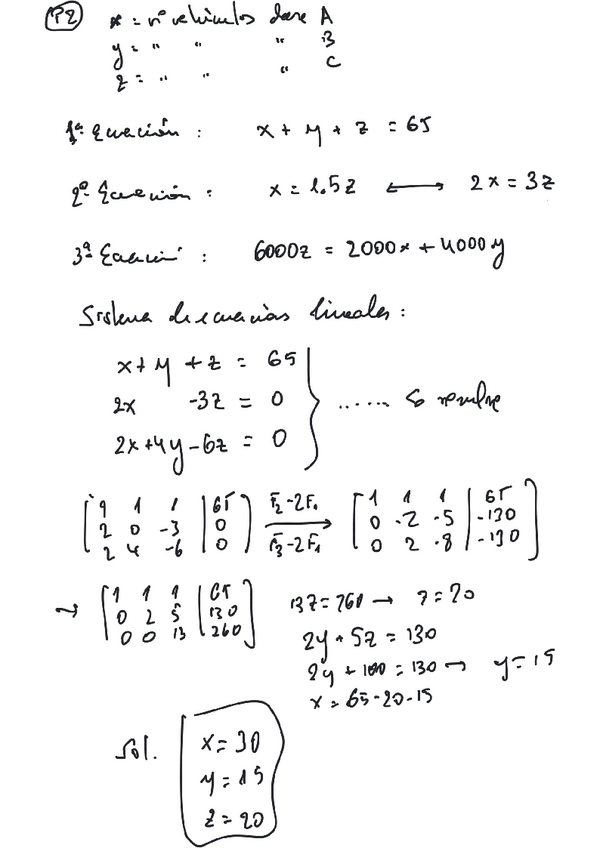 P2
x = nº vehículos clase A
y = " " " B
z = " " " C
1ª Ecuación : x + y + z = 65
2ª Ecuación : x = 1.5z ⟷ 2x = 3z
3ª Ecuación : 6000z = 2000x + 4000y
Sistema de ecuaciones lineales :
x + y + z = 65
2x -3z = 0
2x+4y-6z = 0
...... Se resuelve
[1 1 1 | 65] F2-2F1 [1 1 1 | 65]
[2 0 -3 | 0] → [0 -2 -5 | -130]
[2 4 -6 | 0] F3-2F1 [0 2 -8 | -130]
→ [1 1 1 | 65] 13z = 260 → z = 20
[0 2 5 | 130] 2y + 5z = 130
[0 0 13 | 260] 2y + 100 = 130 → y = 15
x = 65-20-15
Sol.
x = 30
y = 15
z = 20